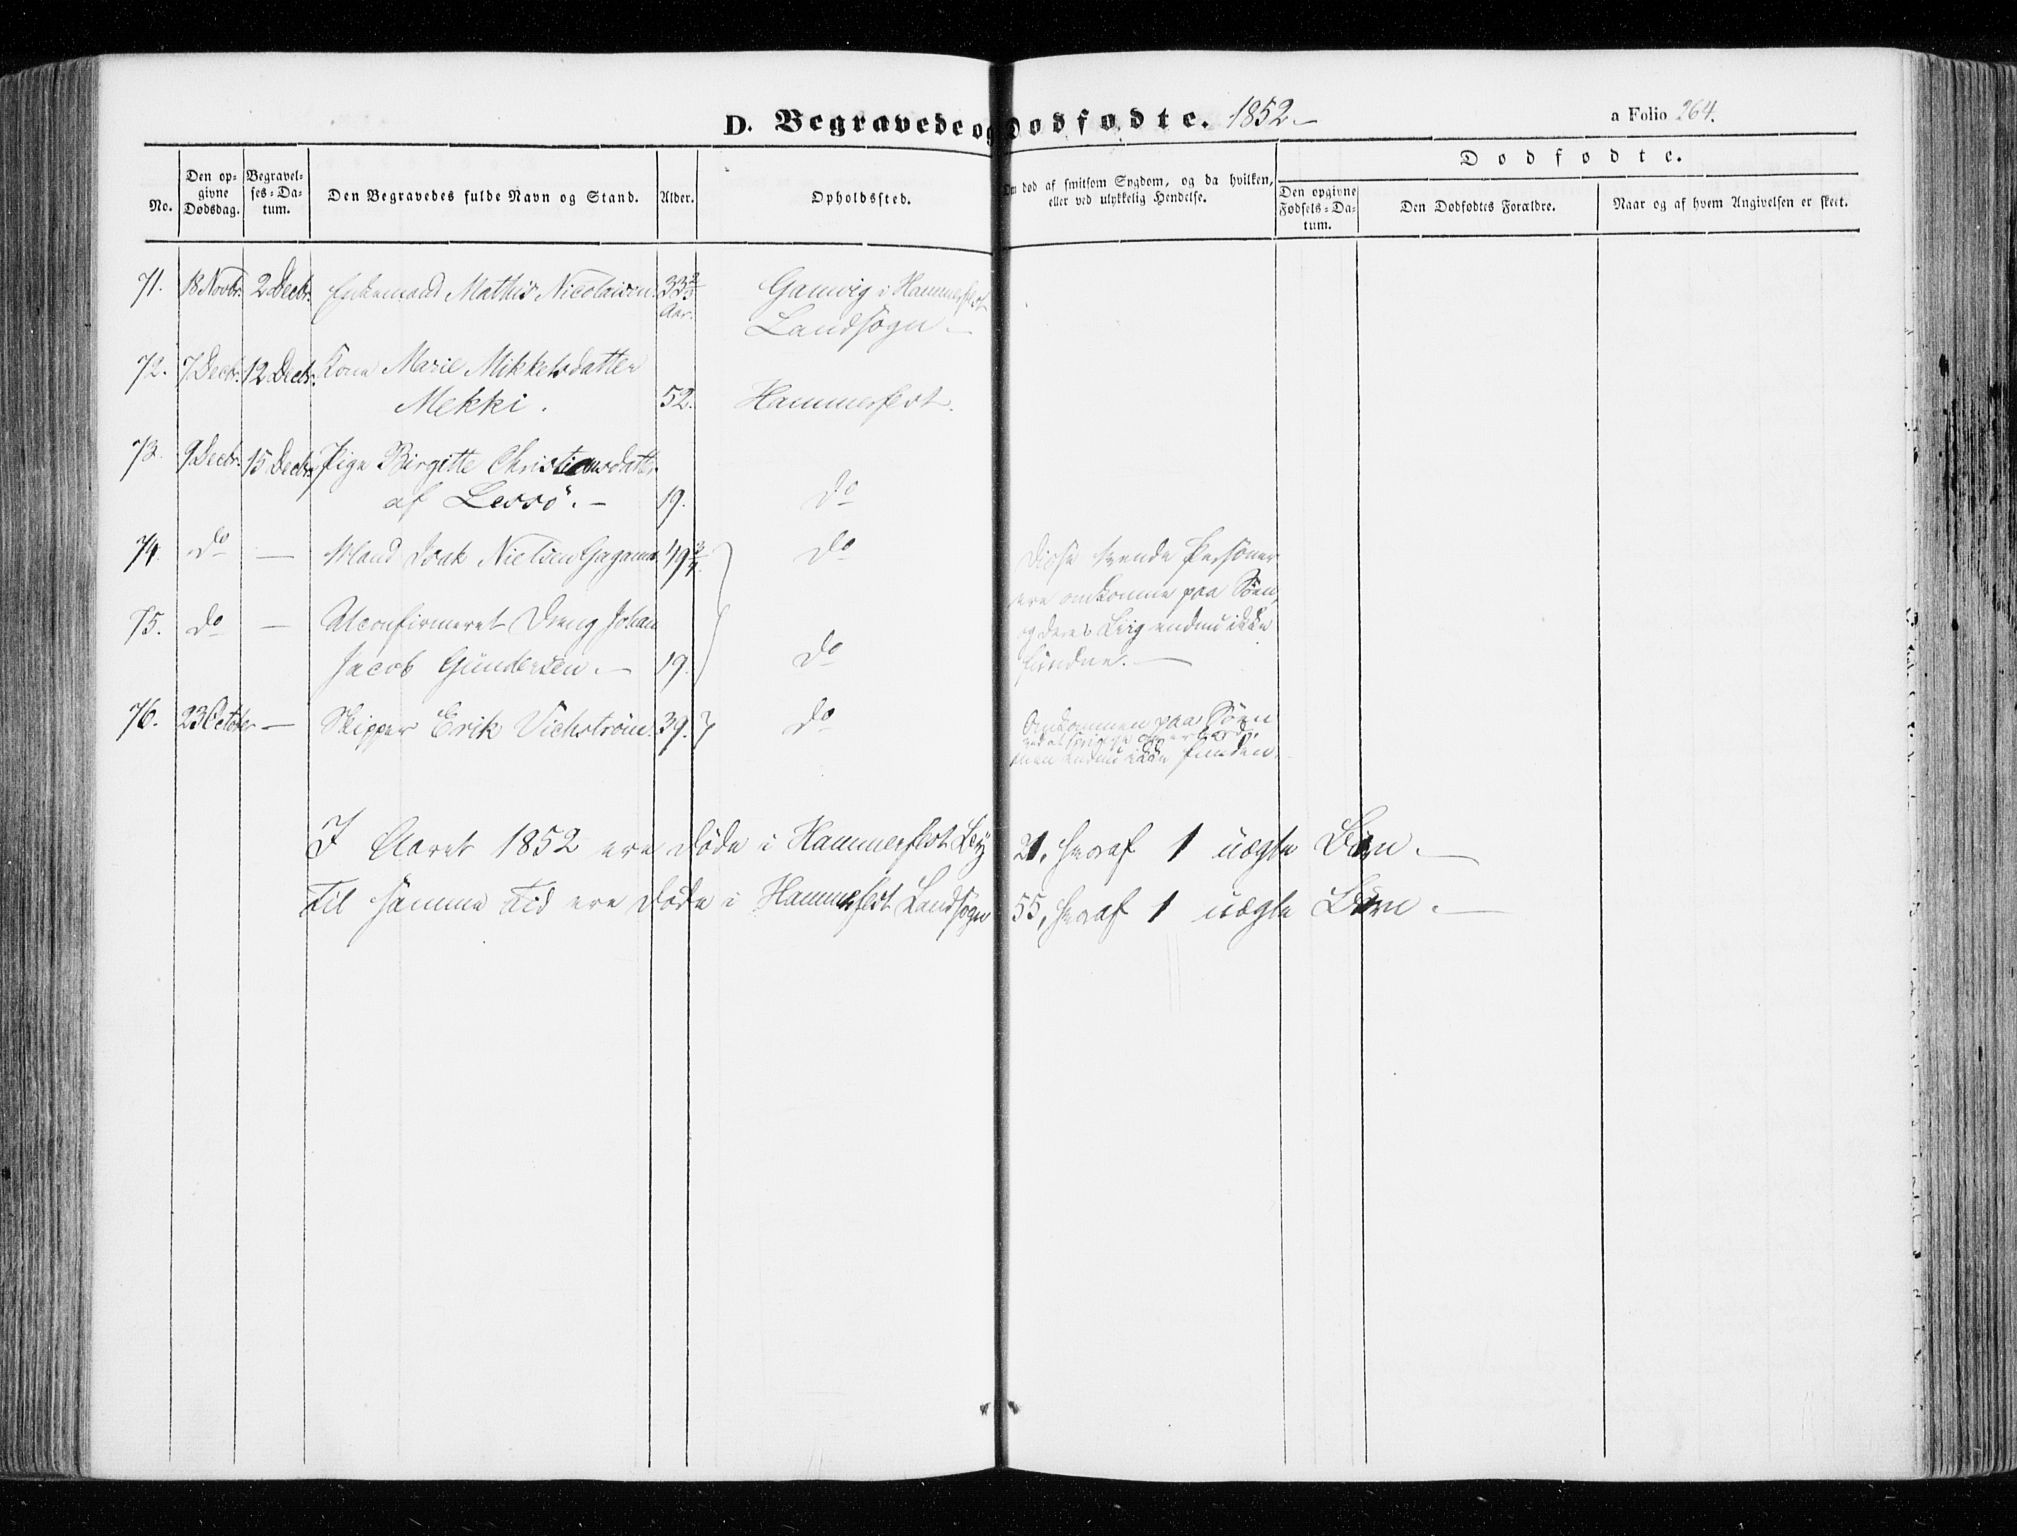 D. Begravede og Dødfødte. 1852.
a Folio 264.
No. Den opgivne Dødsdag. Begravelses-Datum. Den Begravedes fulde Navn og Stand. Alder. Opholdssted. Om død af smitsom Sygdom, og da hvilken, eller ved ulykkelig Hendelse. Dødfødte. Den opgivne Fødsels-Datum. Den Dødfødtes Forældre. Naar og af hvem Angivelsen er skeet.
71. 18 Novbr. 2 Decbr. Enkemand Mathis Nicolaisen. 33 Aar. Gamvig i Hammerfest
Landsogn
72. 7 Decbr. 12 Decbr. Kone Marie Mikkelsdatter
Mekki. 52. Hammerfest.
73. 9 Decbr. 15 Decbr. Pige Birgitte Christiansdatter
af Lessö. 19. Do
74. Do — Mand Isak Nielsen Gagama 49 3/4. Do Disse tvende Personer
ere omkomne paa Søen,
75. Do — Uconfirmeret Dreng Johan og deres Liig endnu ikke
Jacob Gundersen. 19. Do fundne.
76. 23 October — Skipper Erik Vichström. 39. Do Omkommen paa Søen
ved at springe over bord,
men endnu ikke funden.
I Aaret 1852 ere døde i Hammerfest By 21, heraf 1 uægte Barn.
Til samme Tid ere døde i Hammerfest Landsogn 55, heraf 1 uægte Barn.